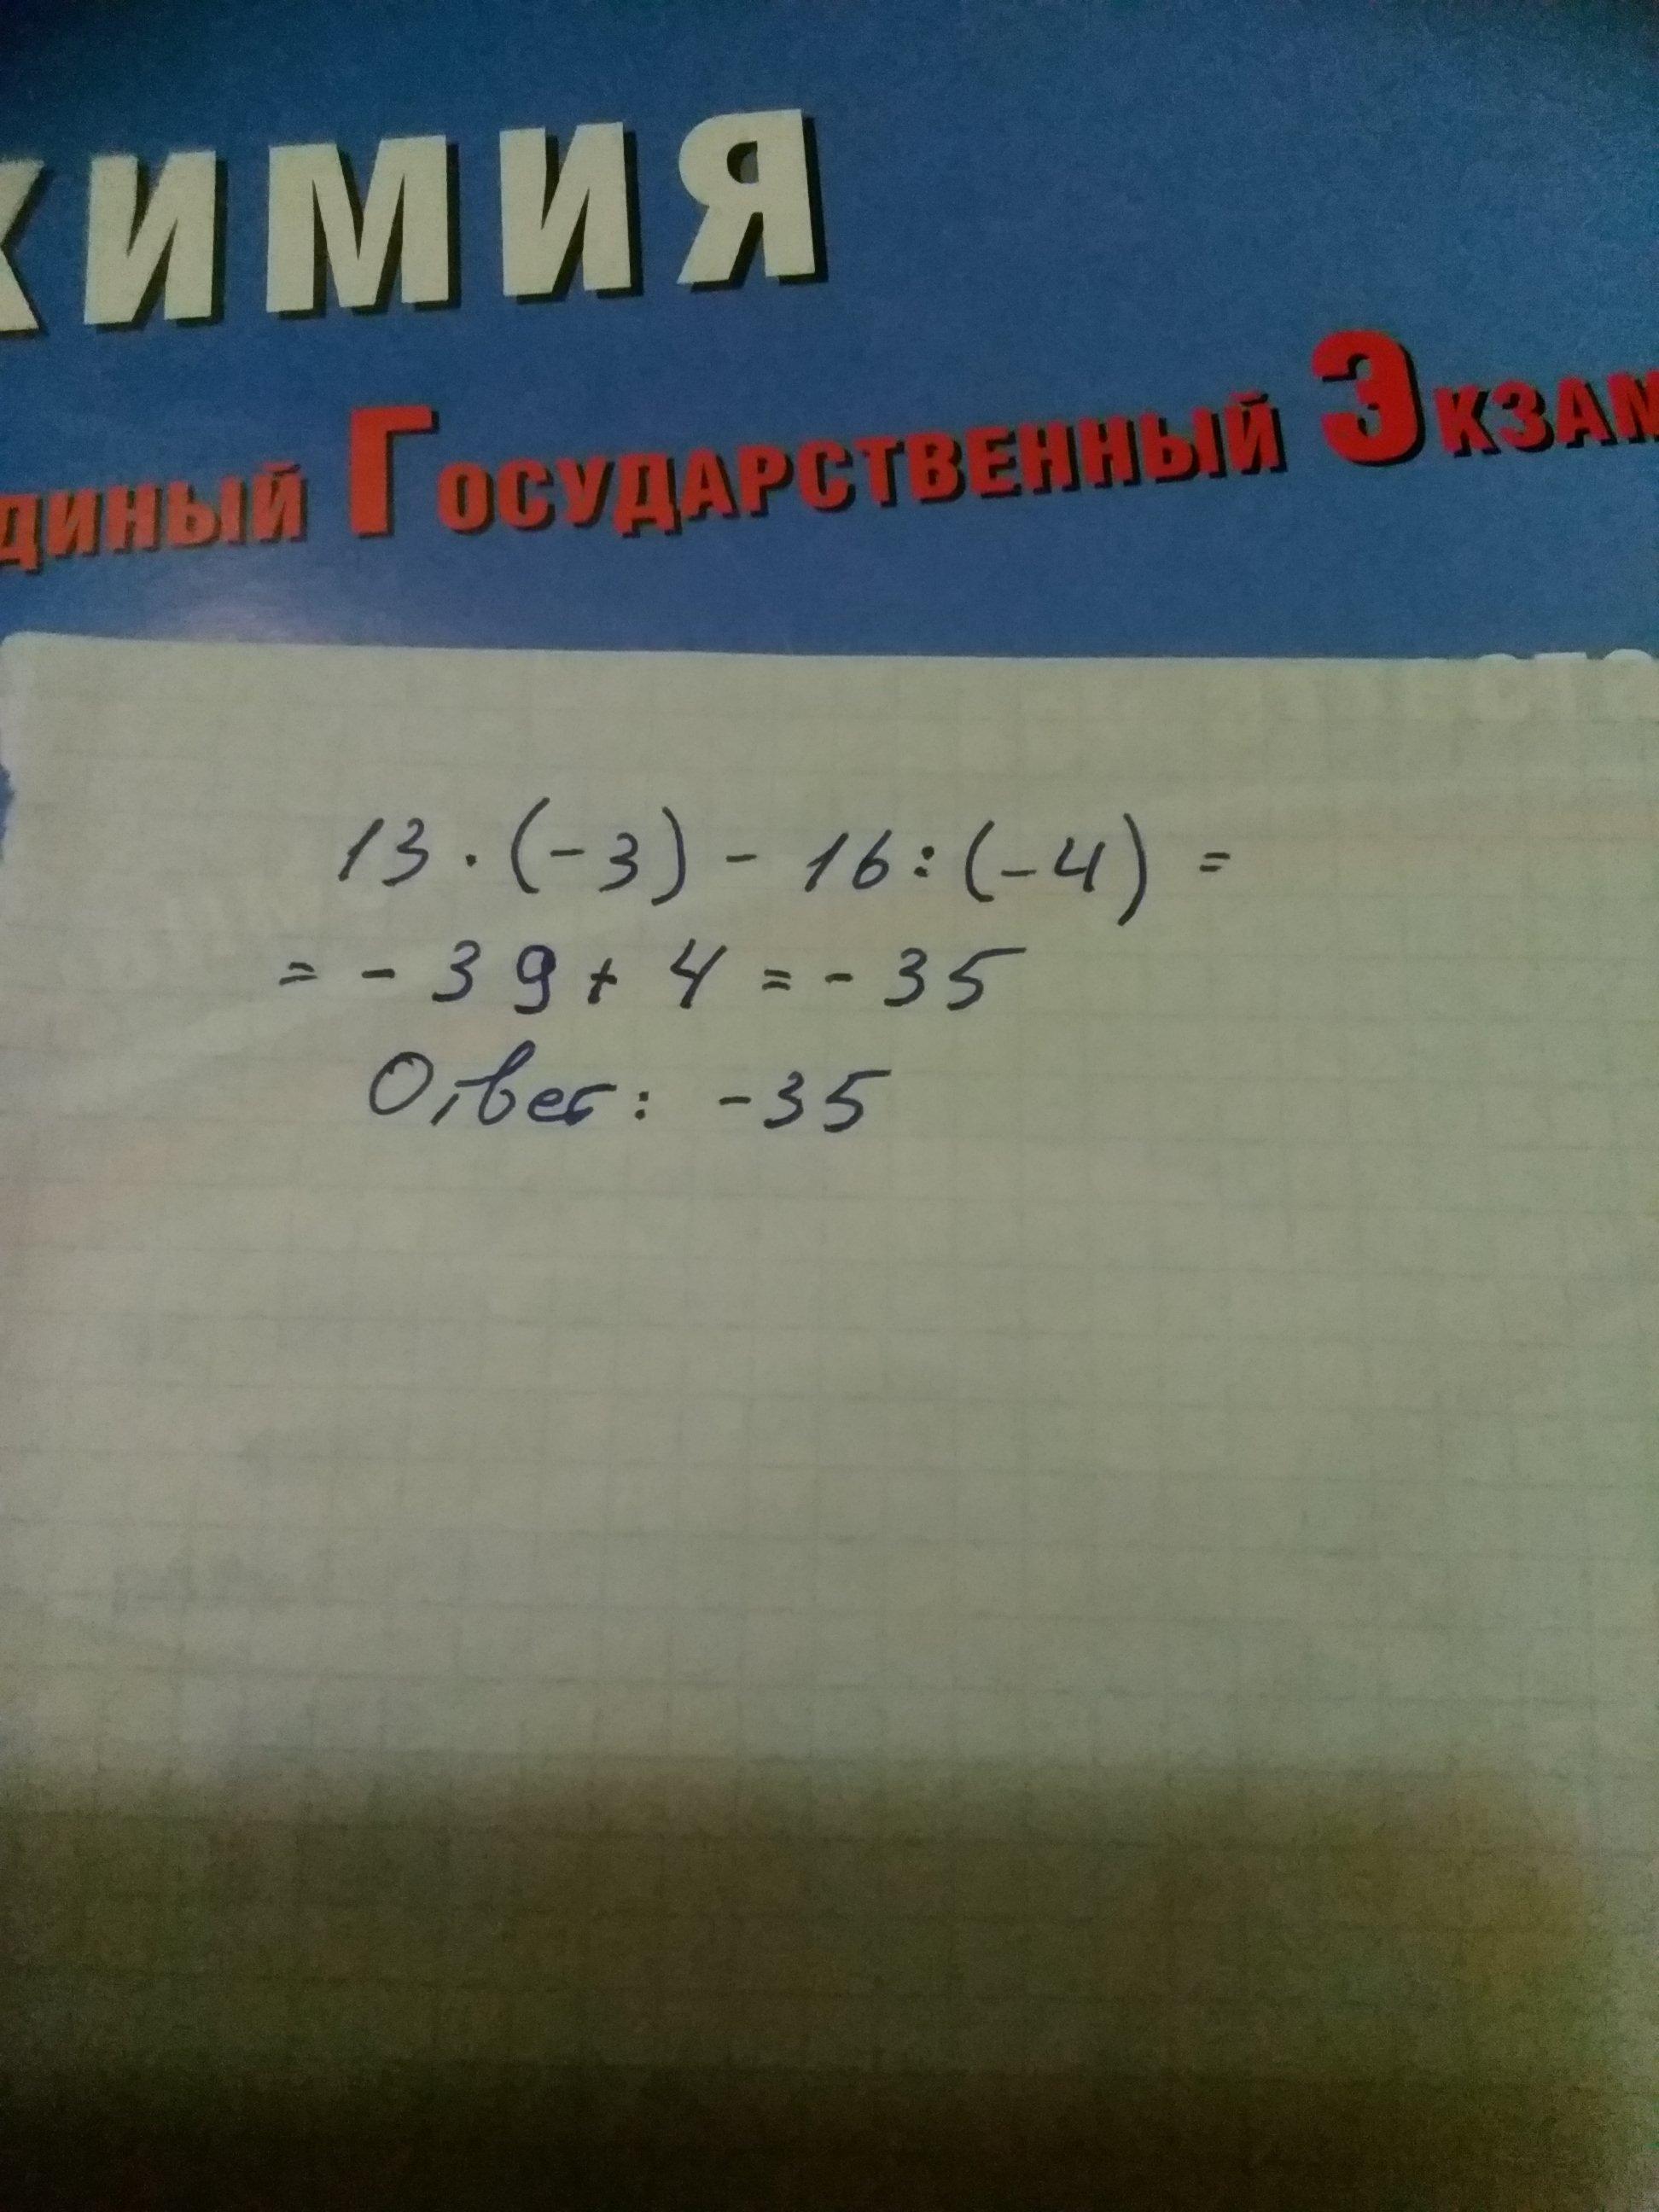 ХИМИЯ
ДИНЫЙ ГОСУДАРСТВЕННЫЙ ЭКЗАМ
13 · (-3) - 16 : (-4) =
= - 39 + 4 = - 35
Ответ: -35